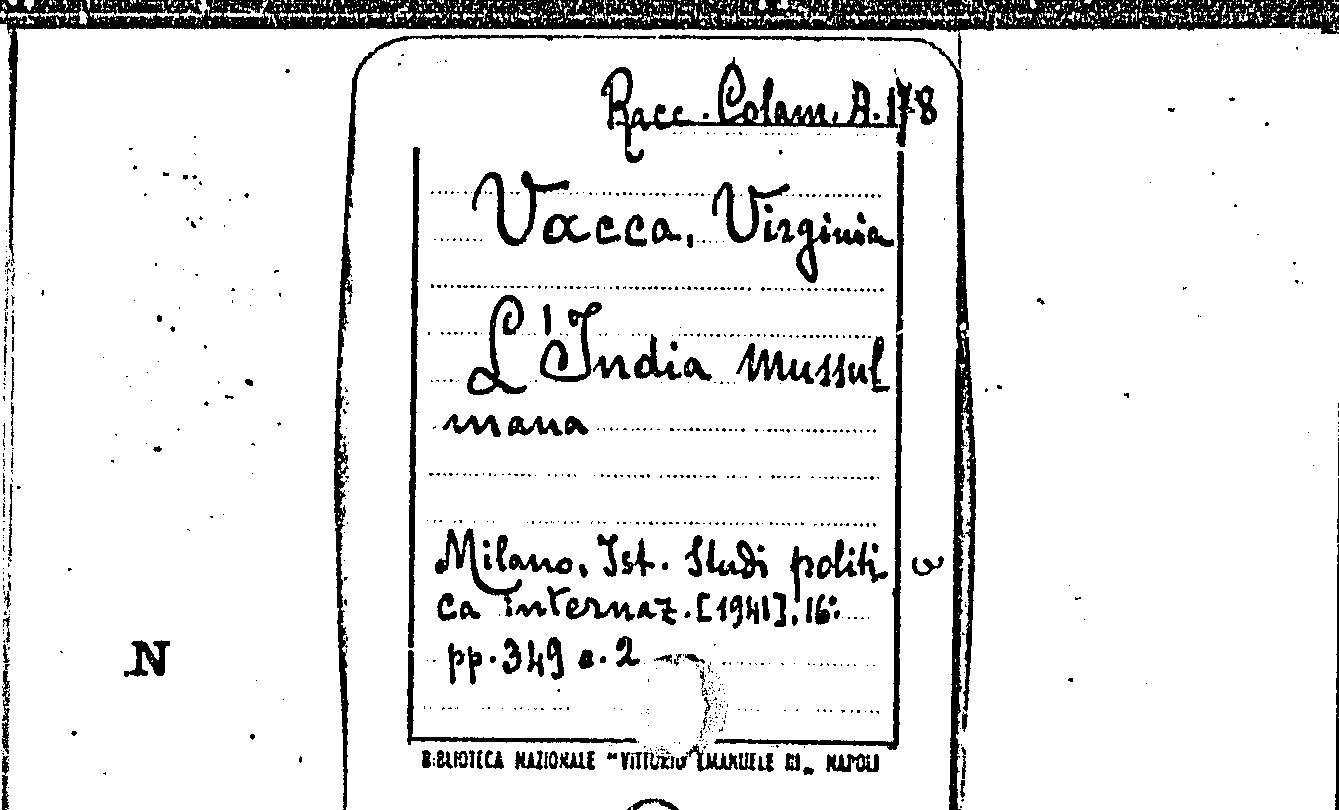 Racc. Colam. A. 178
Vacca, Virginia
L'India Mussul
mana
Milano, Ist. Studi politi
ca internaz. [1941], 16°
pp. 349 c. 2
N
BIBLIOTECA NAZIONALE "VITTORIO EMANUELE III„ NAPOLI